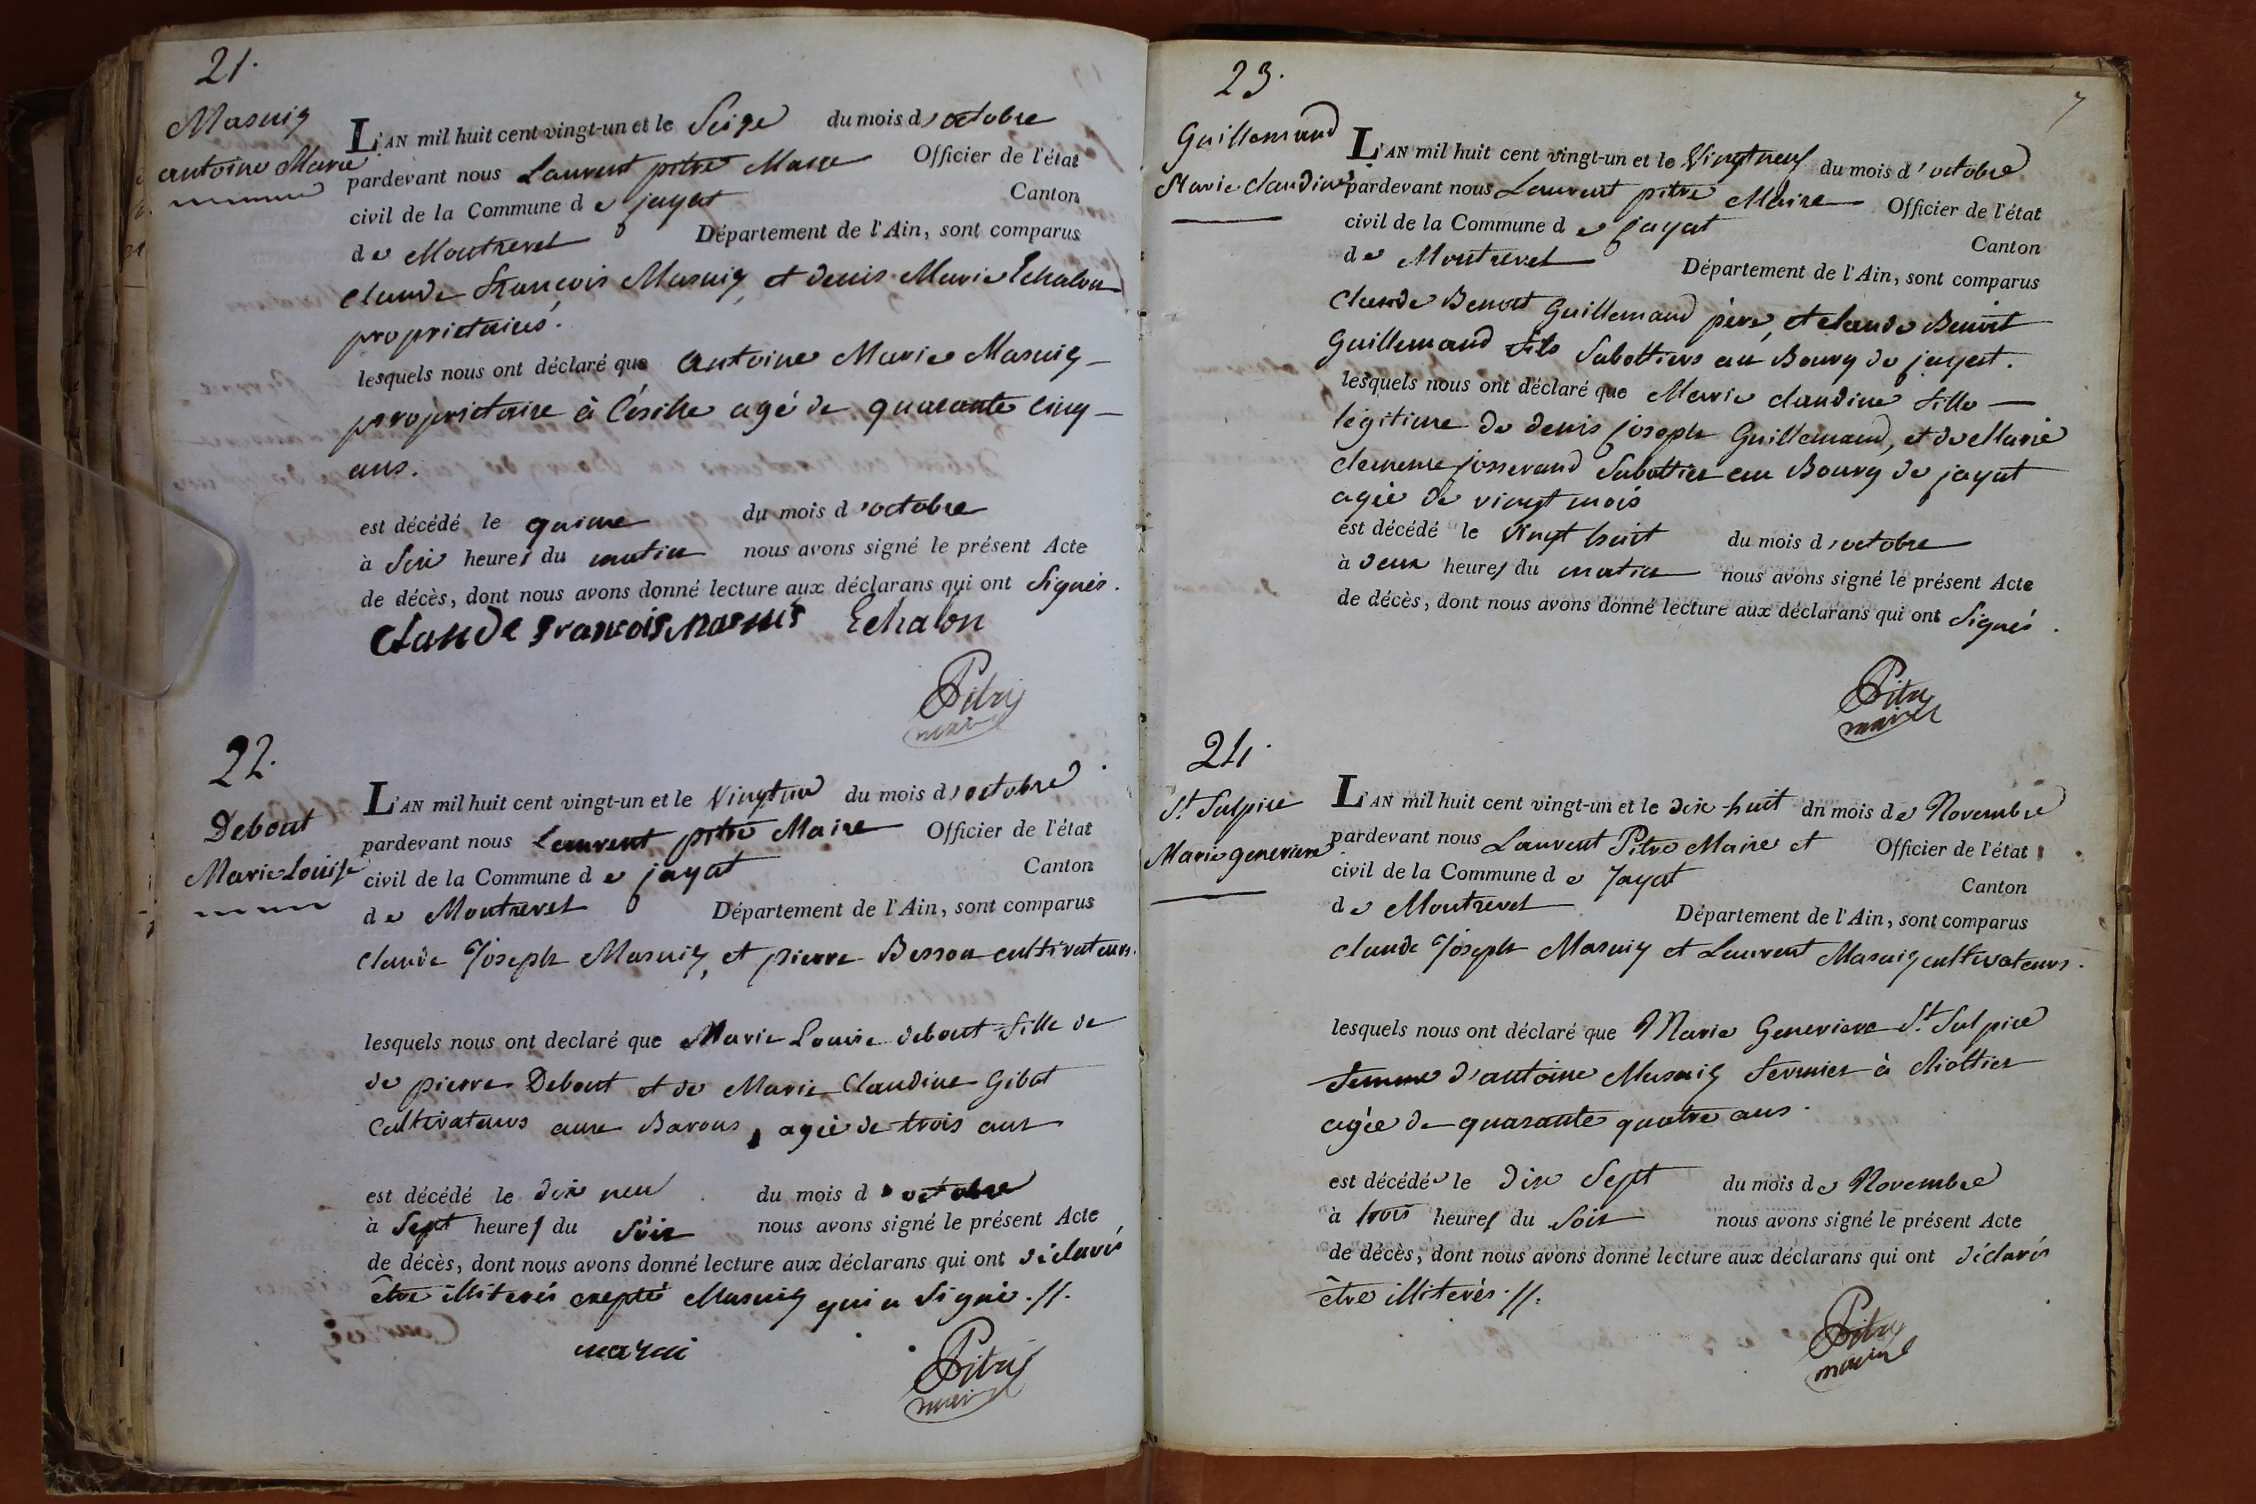 21.
Masuiy
antoine Marie
L'AN mil huit cent vingt-un et le Seize du mois d'octobre
pardevant nous Laurent pitre Maire Officier de l'état
civil de la Commune de jayat Canton
de Montrevel Département de l'Ain, sont comparus
Claude François Masuiy, et denis Marie Echalon
proprietaires.
lesquels nous ont déclaré que antoine Marie Masuiy
proprietaire à agé de quarante cinq
ans.
est décédé le quinze du mois d'octobre
à Six heures du matin nous avons signé le présent Acte
de décès, dont nous avons donné lecture aux déclarans qui ont Signés.
Claude François Echalon
Pitre
maire
22.
Debout
Marie Louise
L'AN mil huit cent vingt-un et le Vingt un du mois d'octobre
pardevant nous Laurent pitre Maire Officier de l'état
civil de la Commune de jayat Canton
de Montrevel Département de l'Ain, sont comparus
Claude Joseph Masuiy, et pierre Besson cultivateurs.
lesquels nous ont declaré que Marie Louise debout fille de
de pierre Debout et de Marie Claudine Gibot
Cultivateurs aux Barons, agée de trois ans
est décédé le dix neu du mois d'octobre
à Sept heures du Soir nous avons signé le présent Acte
de décès, dont nous avons donné lecture aux déclarans qui ont déclarés
être illiterés excepté Masuiy qui a Signé. //.
Pitre
maire
23.
7
Guillemaud
Marie Claudine
L'AN mil huit cent vingt-un et le Vingt neuf du mois d'octobre
pardevant nous Laurent pitre Maire Officier de l'état
civil de la Commune de jayat Canton
de Montrevel Département de l'Ain, sont comparus
Claude Benoit Guillemaud père, et claude Benoit
Guillemaud fils Sabottiers au Bourg de jayat.
lesquels nous ont déclaré que Marie claudine fille
légitime de denis joseph Guillemaud, et de Marie
clemence josserand Sabottier au Bourg de jayat
agée de vingt mois
est décédé le Vingt huit du mois d'octobre
à deux heures du matin nous avons signé le présent Acte
de décès, dont nous avons donné lecture aux déclarans qui ont Signés.
Pitre
maire
24.
St Sulpice
Marie genevieve
L'AN mil huit cent vingt-un et le dix-huit du mois de Novembre
pardevant nous Laurent Pitre Maire et Officier de l'état
civil de la Commune de Jayat Canton
de Montrevel Département de l'Ain, sont comparus
Claude Joseph Masuiy et Laurent Masuiy cultivateurs.
lesquels nous ont déclaré que Marie Genevieve St Sulpice
femme d'antoine Masuiy fermier à
agée de quarante quatre ans.
est décédée le Dix Sept du mois de Novembre
à trois heures du Soir nous avons signé le présent Acte
de décès, dont nous avons donné lecture aux déclarans qui ont déclarés
être illiterés. //.
Pitre
maire